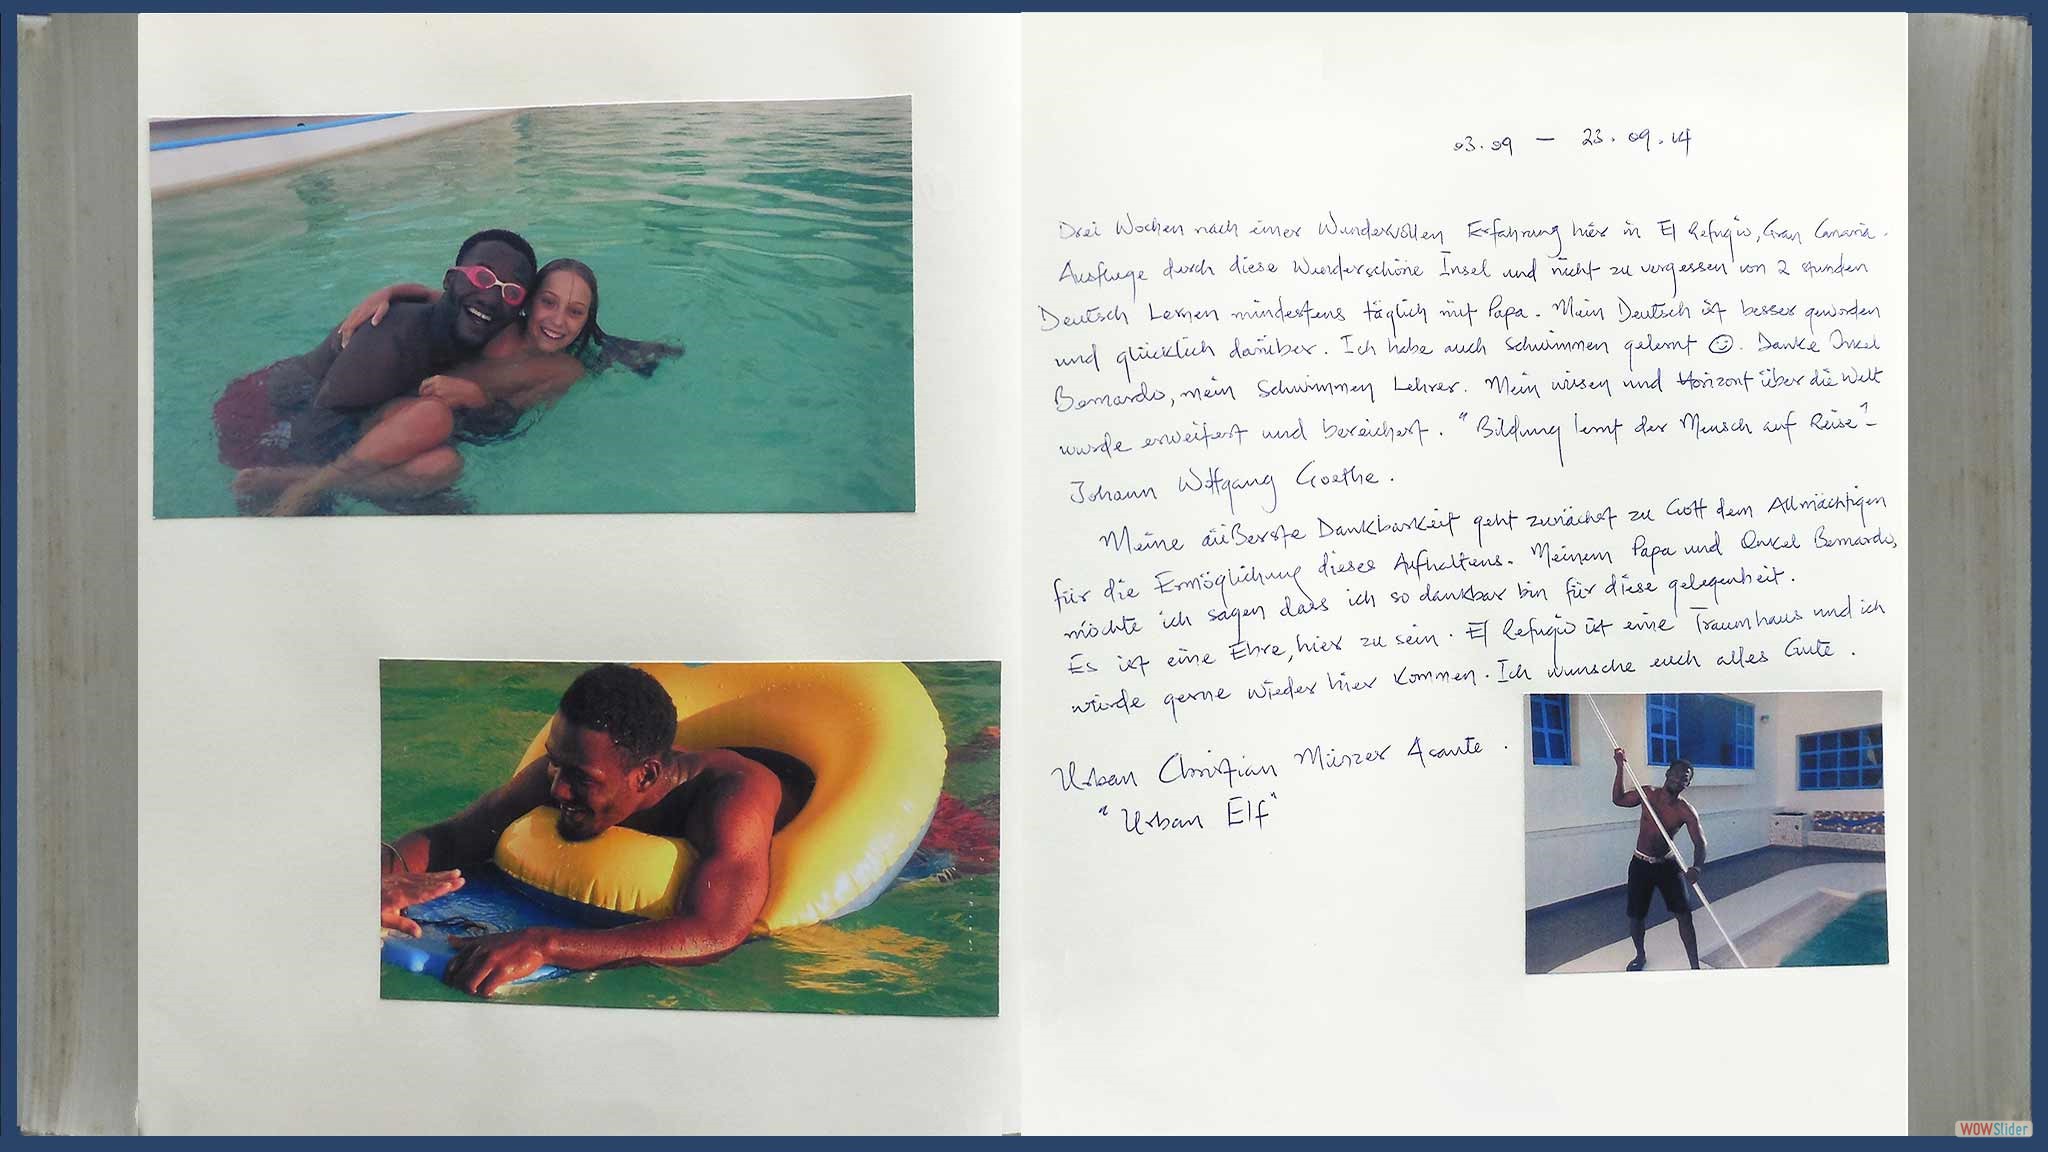 03.09 — 23.09.14
Drei Wochen nach einer Wundervollen Erfahrung hier in El Refugio, Gran Canaria.
Ausfluge durch diese Wunderschöne Insel und nicht zu vergessen von 2 stunden
Deutsch Lernen mindestens täglich mit Papa. Mein Deutsch ist besser geworden
und glücklich darüber. Ich habe auch Schwimmen gelernt ☺. Danke Onkel
Bernardo, mein Schwimmen Lehrer. Mein wissen und Horizont über die Welt
wurde erweitert und bereichert. "Bildung lernt der Mensch auf Reise" -
Johann Wolfgang Goethe.
Meine äüßerste Dankbarkeit geht zunächst zu Gott dem Allmächtigen
für die Ermöglichung dieses Aufhaltens. Meinem Papa und Onkel Bernardo,
möchte ich sagen dass ich so dankbar bin für diese gelegenheit.
Es ist eine Ehre, hier zu sein. El Refugio ist eine Traumhaus und ich
würde gerne wieder hier kommen. Ich wunsche euch alles Gute.
Urban Christian Münzer Asante.
"Urban Elf"
WOWSlider